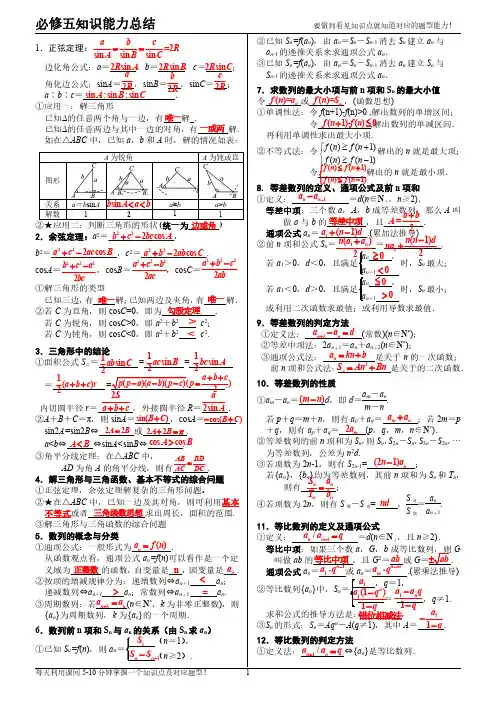 必修五知识能力总结
要做到看见知识点就知道对应的题型能力!
1．正弦定理: a/sin A = b/sin B = c/sin C =2R
边化角公式: a=2R sin A b=2R sin B c=2R sin C;
角化边公式: sinA=a/2R, sinB=b/2R, sinC=c/2R;
a : b : c = sin A : sin B : sin C.
①应用一: 解三角形
已知Δ的任意两个角与一边, 有唯一解.
已知Δ的任意两边与其中一边的对角, 有一或两 解.
如在△ABC 中, 已知 a、b 和 A 时, 解的情况如表:
A 为锐角 A 为钝或直
图形
关系 a=bsinA bsinA<a<b a≥b a>b
解数 1 2 1 1
②★应用二: 判断三角形的形状(统一为 边或角 )
2．余弦定理: a²= b²+c²-2bc cos A,
b²= a²+c²-2ac cos B, c²= a²+b²-2ab cos C.
cosA= (b²+c²-a²)/2bc, cosB= (a²+c²-b²)/2ac, cosC= (a²+b²-c²)/2ab
①解三角形的类型
已知三边,有 唯一解;已知两边及夹角,有 唯一 解.
②若 C 为直角, 则 cosC=0, 即为 勾股定理 .
若 C 为锐角, 则 cosC>0, 即 a²+b² > c²;
若 C 为钝角, 则 cosC<0, 即 a²+b² < c².
3．三角形中的结论
①面积公式 S△= 1/2 ab sin C = 1/2 ac sin B = 1/2 bc sin A
= 1/2 (a+b+c)r = √p(p-a)(p-b)(p-c)(p=(a+b+c)/2)
内切圆半径 r= 2S/(a+b+c), 外接圆半径 R= a/2sin A.
②A+B+C=π, 则 sinA=sin(B+C), cosA=-cos(B+C)
sin2A=sin2B⇔ 2A=2B 或 2A+2B=π.
a<b⇔ A<B ⇔sinA<sinB⇔ cos A>cos B
③角平分线定理: 在△ABC 中,
AD 为角 A 的角平分线, 则有 AB/AC = BD/DC.
4．解三角形与三角函数、基本不等式的综合问题
①正弦定理, 余弦定理解复杂的三角形问题.
②★在△ABC 中, 已知一边及其对角, 则可利用基本
不等式或者 三角函数思想 求出周长, 面积的范围.
③解三角形与三角函数的综合问题
5．数列的概念与分类
①通项公式: 一般形式为 aₙ=f(n).
从函数观点看, 通项公式 aₙ=f(n)可以看作是一个定
义域为 正整数 的函数, 自变量是 n , 因变量是 aₙ.
②按项的增减规律分为: 递增数列⇔aₙ₊₁ < aₙ;
递减数列⇔aₙ₊₁ > aₙ; 常数列⇔aₙ₊₁ = aₙ.
③周期数列: 若aₙ₊ₖ=aₙ(n∈N*, k 为非零正整数), 则
{aₙ}为周期数列, k 为{aₙ}的一个周期.
6．数列前 n 项和 Sₙ与 aₙ 的关系 (由 Sₙ 求 aₙ)
①已知 Sₙ=f(n), 则 aₙ= { S₁ (n=1), Sₙ-Sₙ₋₁(n≥2).
②已知 Sₙ=f(aₙ), 由 aₙ=Sₙ-Sₙ₋₁ 消去 Sₙ 建立 aₙ 与
aₙ₋₁ 的递推关系来求通项公式 aₙ.
③已知 Sₙ=f(aₙ), 由 aₙ=Sₙ-Sₙ₋₁ 消去 aₙ 建立 Sₙ 与
Sₙ₋₁ 的递推关系来求通项公式 aₙ.
7．求数列的最大小项与前 n 项和 Sₙ 的最大小值
令 f(n)=aₙ 或 f(n)=Sₙ, (函数思想)
①单调性法: 令 f(n+1)-f(n)>0 ,解出数列的单增区间;
令 f(n+1)-f(n)≤0,解出数列的单减区间.
再利用单调性求出最大小项.
②不等式法: 令{ f(n)≥f(n+1) f(n)≥f(n-1) 解出的 n 就是最大项;
令{ f(n)≤f(n+1) f(n)≤f(n-1) 解出的 n 就是最小项.
8．等差数列的定义、通项公式及前 n 项和
①定义: aₙ-aₙ₋₁ =d(n∈N₊, n≥2).
等差中项: 三个数 a, A, b 成等差数列, 那么 A 叫
做 a 与 b 的 等差中项 , 且 A= (a+b)/2.
通项公式 aₙ= a₁+(n-1)d .(累加法推导)
②前 n 项和公式 Sₙ= n(a₁+aₙ)/2 = na₁+n(n-1)d/2
若 a₁>0, d<0, 且满足{ aₙ≥0 aₙ₊₁<0 时, Sₙ最大;
若 a₁<0, d>0, 且满足{ aₙ≤0 aₙ₊₁>0 时, Sₙ最小;
或利用二次函数求最值; 或利用导数求最值.
9．等差数列的判定方法
①定义法: aₙ₊₁-aₙ=d (常数)(n∈N*);
②等差中项法: 2aₙ₊₁=aₙ+aₙ₊₂(n∈N*);
③通项公式法: aₙ=kn+b 是关于 n 的一次函数;
前 n 项和公式法: Sₙ=An²+Bn 是关于的二次函数.
10．等差数列的性质
①aₘ-aₙ=(m-n)d, 即 d= (aₘ-aₙ)/(m-n)
若 p+q=m+n, 则有 aₚ+a_q= aₘ+aₙ ; 若 2m=p
+q, 则有 aₚ+a_q= 2aₘ (p, q, m, n∈N*).
②等差数列的前 n 项和为 Sₙ, 则 Sₙ, S₂ₙ-Sₙ, S₃ₙ-S₂ₙ, ⋯
为等差数列, 公差为 n²d.
③若项数为 2n-1, 则有 S₂ₙ₋₁= (2n-1)aₙ;
若{aₙ}, {bₙ}均为等差数列, 其前 n 项和为 Sₙ 和 Tₙ,
④若项数为 2n, 则有 S偶-S奇= nd, S奇/S偶 = aₙ/aₙ₊₁
11．等比数列的定义及通项公式
①定义: aₙ/aₙ₋₁=q =d(n∈N₊, 且 n≥2).
等中项: 如果三个数 a, G, b 成等比数列, 则 G
叫做 ab 的等比中项 , 且 G²=ab 或 G=±√ab.
通项公式 aₙ= a₁·qⁿ⁻¹或 aₙ=aₘ·qⁿ⁻ᵐ.(累乘法推导)
②等比数列{aₙ}中, Sₙ={ a₁ , q=1, a₁(1-qⁿ)/(1-q) = (a₁-aₙq)/(1-q), q≠1.
求和公式的推导方法是: 错位相减法
③Sₙ的形式: Sₙ=Aqⁿ-A(q≠1), 其中 A= -a₁/(1-q).
12．等比数列的判定方法
①定义法: aₙ₊₁/aₙ=q ⇔{aₙ}是等比数列.
每天利用课间 5-10 分钟掌握一个知识点及对应题型!
1